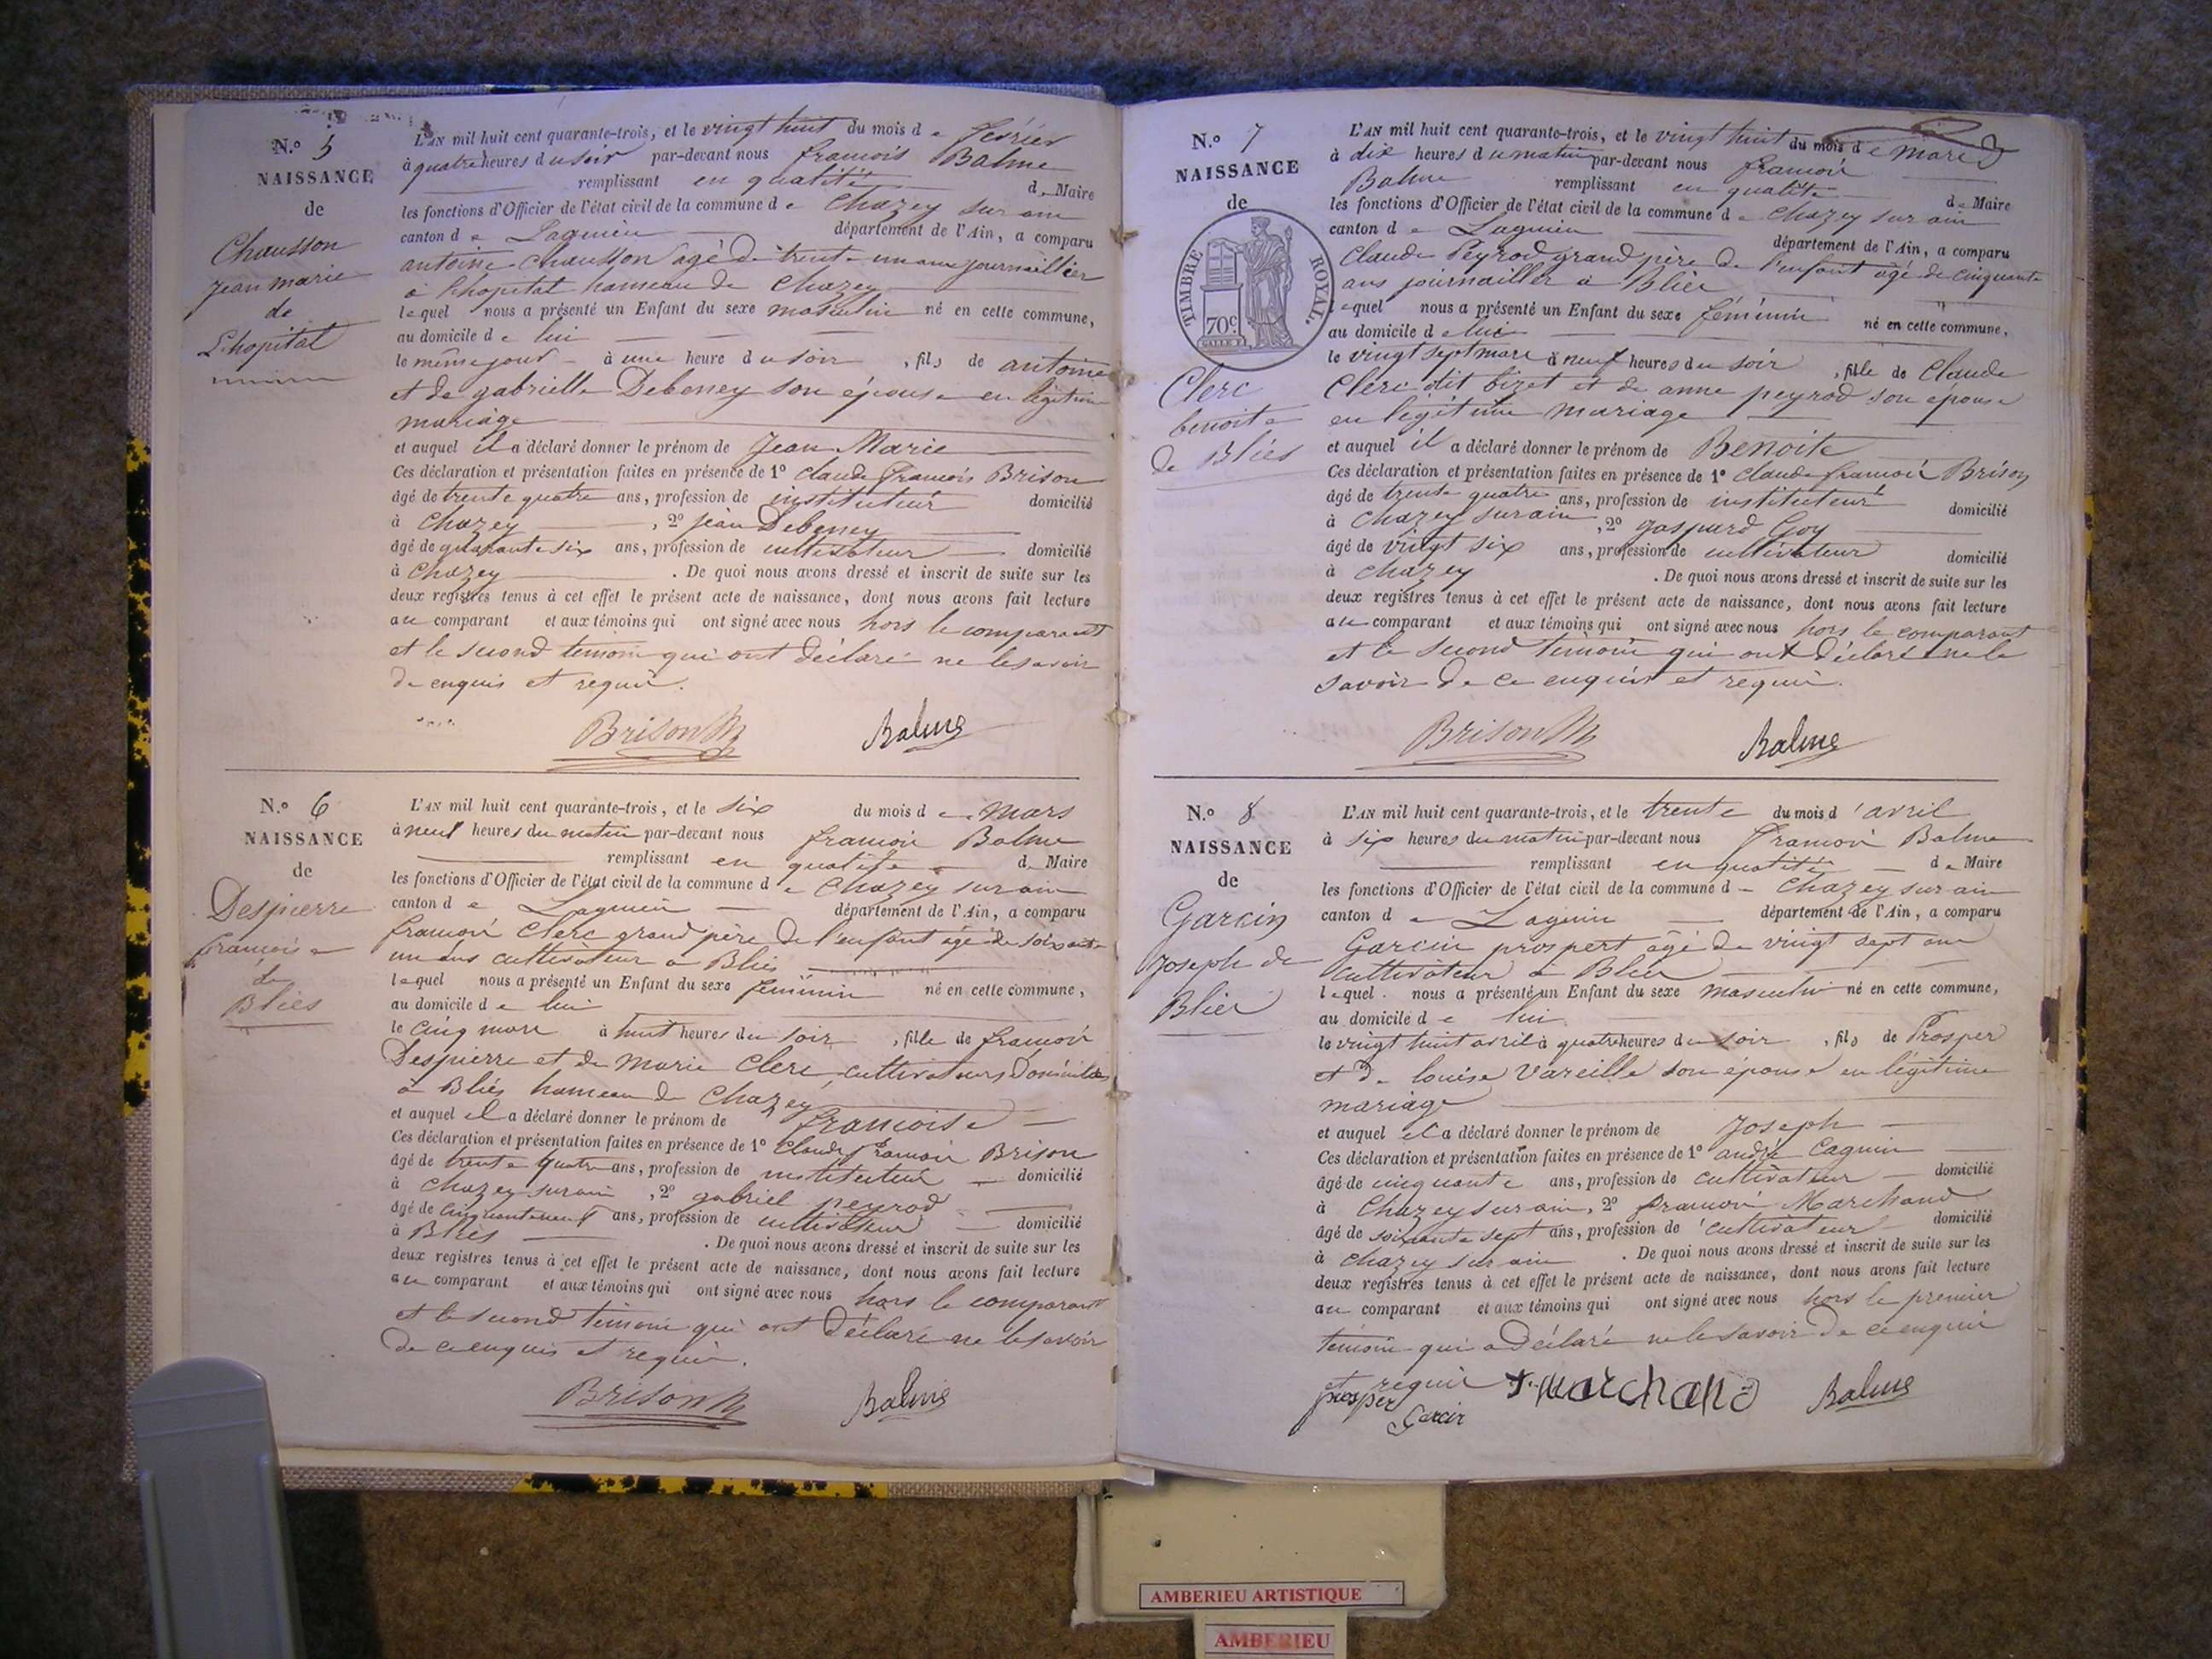 N.o 5
NAISSANCE
de
Chausson
jean marie
de
L'hopital
L'AN mil huit cent quarante-trois, et le vingt huit du mois de février
à quatre heures du soir par-devant nous francois Balme
remplissant en qualité de Maire
les fonctions d'Officier de l'état civil de la commune de Chazey sur ain
canton de Lagnieu département de l'Ain, a comparu
antoine Chausson agé de trente un ans journaillier
à l'hopital hameau de Chazey
lequel nous a présenté un Enfant du sexe masculin né en cette commune,
au domicile de lui
le même jour à une heure du soir, fils de antoine
et de gabrielle Debeney son épouse en légitime
mariage
et auquel il a déclaré donner le prénom de Jean Marie
Ces déclaration et présentation faites en présence de 1o claude francois Brison
âgé de trente quatre ans, profession de instituteur domicilié
à Chazey, 2o jean Debeney
âgé de quarante six ans, profession de cultivateur domicilié
à Chazey. De quoi nous avons dressé et inscrit de suite sur les
deux registres tenus à cet effet le présent acte de naissance, dont nous avons fait lecture
au comparant et aux témoins qui ont signé avec nous hors le comparant
et le second temoin qui ont déclaré ne le savoir
de enquis et requis.
Brison Balme
N.o 6
NAISSANCE
de
Despierre
francoise
de
Bliès
L'AN mil huit cent quarante-trois, et le six du mois de mars
à neuf heures du matin par-devant nous francois Balme
remplissant en qualité de Maire
les fonctions d'Officier de l'état civil de la commune de Chazey sur ain
canton de Lagnieu département de l'Ain, a comparu
francois Clerc grand père de l'enfant agé de soixante
un ans cultivateur a Bliès
lequel nous a présenté un Enfant du sexe feminin né en cette commune,
au domicile de lui
le cinq mars à huit heures du soir, fille de francois
Despierre et de Marie Clerc, cultivateurs domiciliés
à Bliès hameau de Chazey
et auquel il a déclaré donner le prénom de francoise
Ces déclaration et présentation faites en présence de 1o Claude francois Brison
âgé de trente quatre ans, profession de instituteur domicilié
à Chazey sur ain, 2o gabriel peyrod
âgé de cinquante neuf ans, profession de cultivateur domicilié
à Bliès. De quoi nous avons dressé et inscrit de suite sur les
deux registres tenus à cet effet le présent acte de naissance, dont nous avons fait lecture
au comparant et aux témoins qui ont signé avec nous hors le comparant
et le second temoin qui ont déclaré ne le savoir
de ce enquis et requis.
Brison Balme
N.o 7
NAISSANCE
de
TIMBRE ROYAL.
70c
Clerc
benoite
de Bliès
L'AN mil huit cent quarante-trois, et le vingt huit du mois de mars
à dix heures du matin par-devant nous francois
Balme remplissant en qualité de Maire
les fonctions d'Officier de l'état civil de la commune de Chazey sur ain
canton de Lagnieu département de l'Ain, a comparu
Claude Peyrod grand père de l'enfant agé de cinquante
ans journaillier à Bliès
lequel nous a présenté un Enfant du sexe féminin né en cette commune,
au domicile de lui
le vingt sept mars à neuf heures du soir, fille de Claude
Clerc dit bizet et de anne peyrod son épouse
en légitime mariage
et auquel il a déclaré donner le prénom de Benoite
Ces déclaration et présentation faites en présence de 1o claude francois Brison
âgé de trente quatre ans, profession de instituteur domicilié
à Chazey sur ain, 2o gaspard Goy
âgé de vingt six ans, profession de cultivateur domicilié
à Chazey. De quoi nous avons dressé et inscrit de suite sur les
deux registres tenus à cet effet le présent acte de naissance, dont nous avons fait lecture
au comparant et aux témoins qui ont signé avec nous hors le comparant
et le second temoin qui ont déclaré ne le
savoir de ce enquis et requis.
Brison Balme
N.o 8
NAISSANCE
de
Garcin
joseph de
Bliès
L'AN mil huit cent quarante-trois, et le trente du mois d'avril
à six heures du matin par-devant nous francois Balme
remplissant en qualité de Maire
les fonctions d'Officier de l'état civil de la commune de Chazey sur ain
canton de Lagnieu département de l'Ain, a comparu
Garcin prospert agé de vingt sept ans
cultivateur à Bliès
lequel nous a présenté un Enfant du sexe masculin né en cette commune,
au domicile de lui
le vingt huit avril à quatre heures du soir, fils de Prosper
et de louise Vareille son épouse en légitime
mariage
et auquel il a déclaré donner le prénom de Joseph
Ces déclaration et présentation faites en présence de 1o andré Cagnin
âgé de cinquante ans, profession de cultivateur domicilié
à Chazey sur ain, 2o francois Marchand
âgé de soixante sept ans, profession de cultivateur domicilié
à Chazey sur ain. De quoi nous avons dressé et inscrit de suite sur les
deux registres tenus à cet effet le présent acte de naissance, dont nous avons fait lecture
au comparant et aux témoins qui ont signé avec nous hors le premier
témoin qui a déclaré ne le savoir de ce enquis
et requis f. marchand Balme
prosper
Garcin
AMBERIEU ARTISTIQUE
AMBERIEU